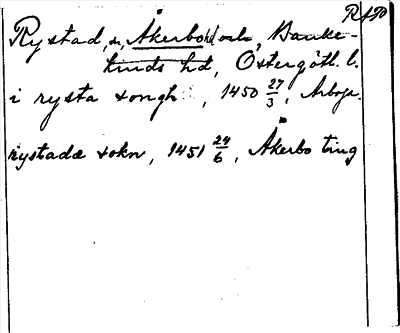 RAp
Rystad, s., Åkerbo hd och Banke-
kinds hd, Östergötl. l.
i rysta songh, 1450 27/3, Arboga.
rystadæ sokn, 1451 24/6, Åkerbo ting